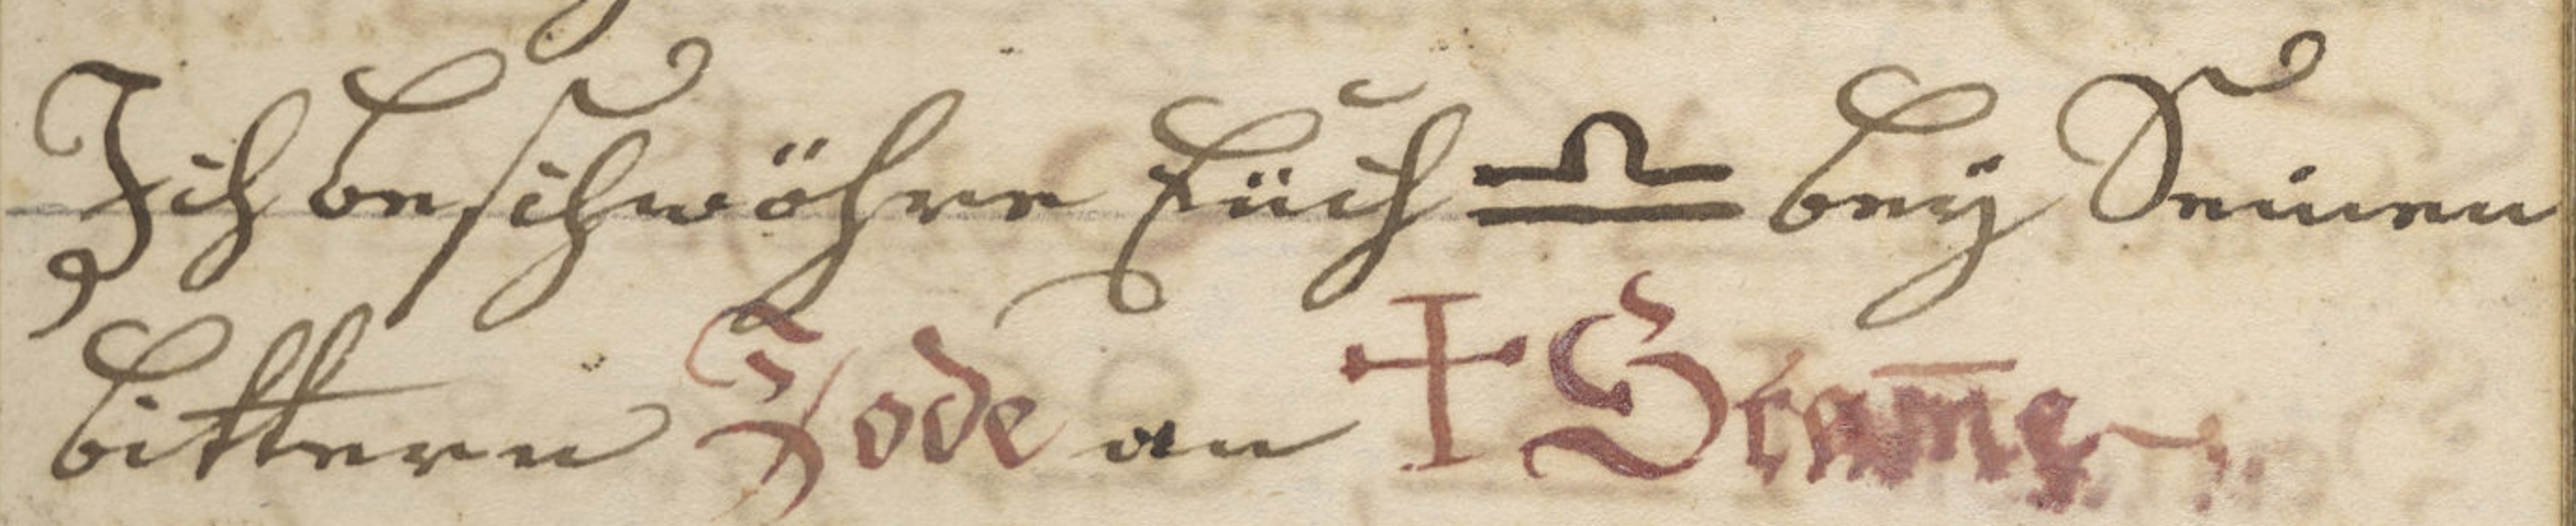 Ich beschwöhre Eüch ♎ beÿ Seinen
bittern Tode an ✝ Stam̅e